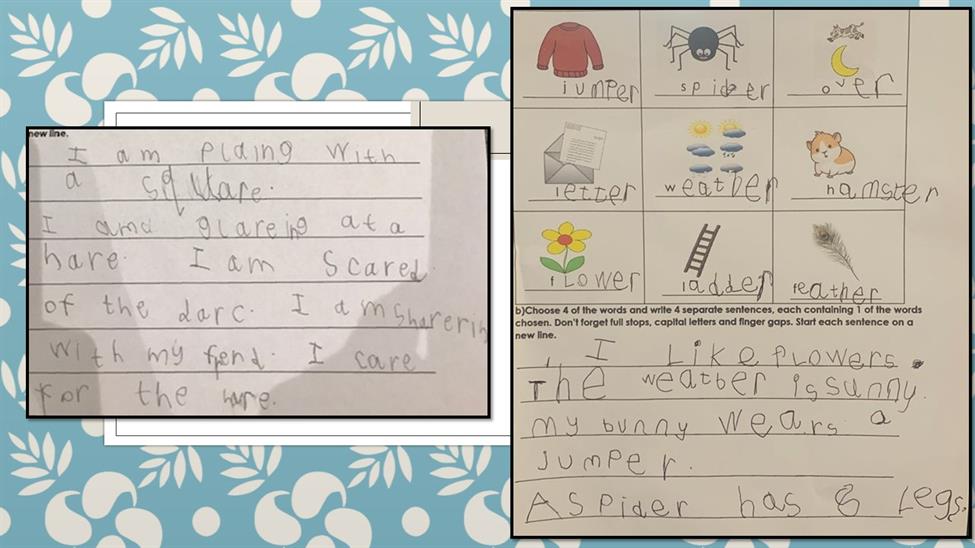 new line.
I am plaing with
a sqware.
I ama glareing at a
hare. I am scared
of the darc. I am sharering
with my frend. I care
for the hare.
jumper spider over
letter weather hamster
flower ladder feather
b)Choose 4 of the words and write 4 separate sentences, each containing 1 of the words
chosen. Don't forget full stops, capital letters and finger gaps. Start each sentence on a
new line.
I Like flowers.
The weather is sunny.
my bunny wears a
jumper.
A spider has 8 Legs.